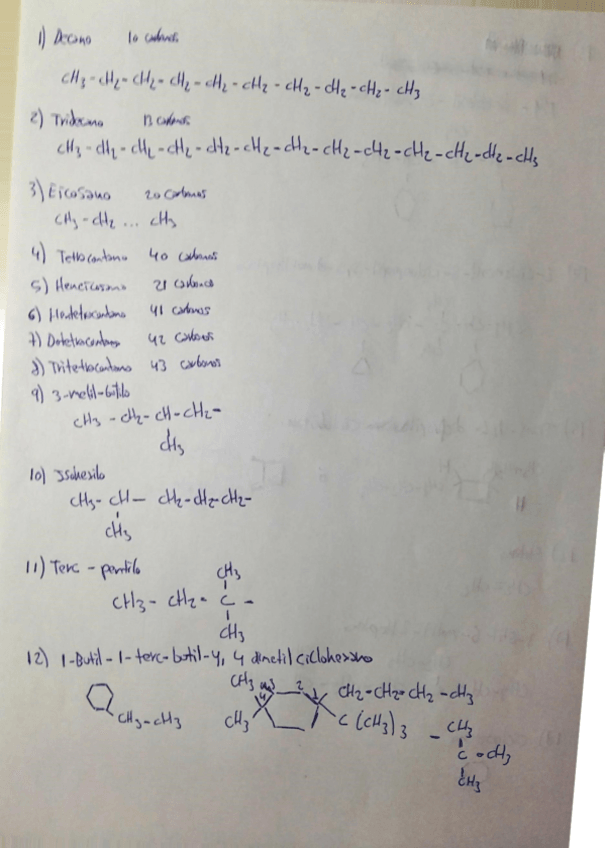 1) Decano 10 carbonos
CH3 - CH2 - CH2 - CH2 - CH2 - CH2 - CH2 - CH2 - CH2 - CH3
2) Tridecano 13 carbonos
CH3 - CH2 - CH2 - CH2 - CH2 - CH2 - CH2 - CH2 - CH2 - CH2 - CH2 - CH2 - CH3
3) Eicosano 20 carbonos
CH3 - CH2 ... CH3
4) Tetracontano 40 carbonos
5) Heneicosano 21 carbonos
6) Hentetracontano 41 carbonos
7) Dotetracontano 42 carbonos
8) Tritetracontano 43 carbonos
9) 3-metil-butilo
CH3 - CH2 - CH - CH2 -
CH3
10) Isohexilo
CH3 - CH - CH2 - CH2 - CH2 -
CH3
11) Terc - pentilo
CH3
CH3 - CH2 - C -
CH3
12) 1-Butil - 1 - terc - butil - 4, 4 dimetil ciclohexano
CH3 3 2 1 CH2 - CH2 - CH2 - CH3
CH3 - CH3 4 CH3 C (CH3)3 - CH3
C - CH3
CH3